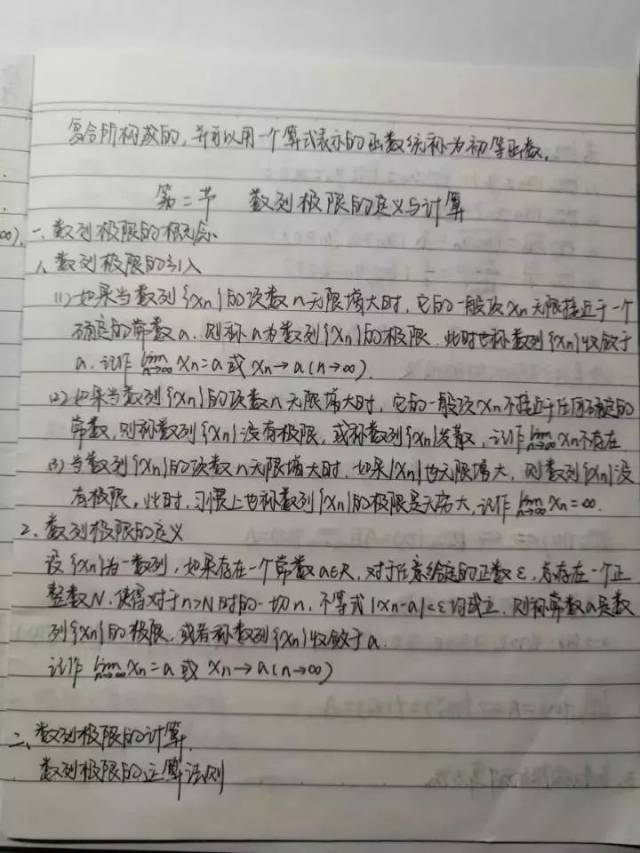 复合所构成的,并可以用一个算式表示的函数统称为初等函数。
第二节 数列极限的定义与计算
∞).
一、数列极限的概念
1、数列极限的引入
(1) 如果当数列{Xn}的项数n无限增大时,它的一般项Xn无限接近于一个
确定的常数a,则称a为数列{Xn}的极限,此时也称数列{Xn}收敛于
a,记作 lim n→∞ Xn=a 或 Xn→a(n→∞).
(2) 如果当数列{Xn}的项数n无限增大时,它的一般项Xn不接近于任何确定的
常数,则称数列{Xn}没有极限,或称数列{Xn}发散,记作 lim n→∞ Xn不存在
(3) 当数列{Xn}的项数n无限增大时,如果|Xn|也无限增大,则数列{Xn}没
有极限。此时,习惯上也称数列{Xn}的极限是无穷大,记作 lim n→∞ Xn=∞.
2、数列极限的定义
设{Xn}为一数列,如果存在一个常数a∈R,对于任意给定的正数ε,总存在一个正
整数N,使得对于n>N时的一切n,不等式|Xn-a|<ε均成立,则称常数a是数
列{Xn}的极限,或者称数列{Xn}收敛于a.
记作 lim n→∞ Xn=a 或 Xn→a(n→∞)
二、数列极限的计算.
数列极限的运算法则